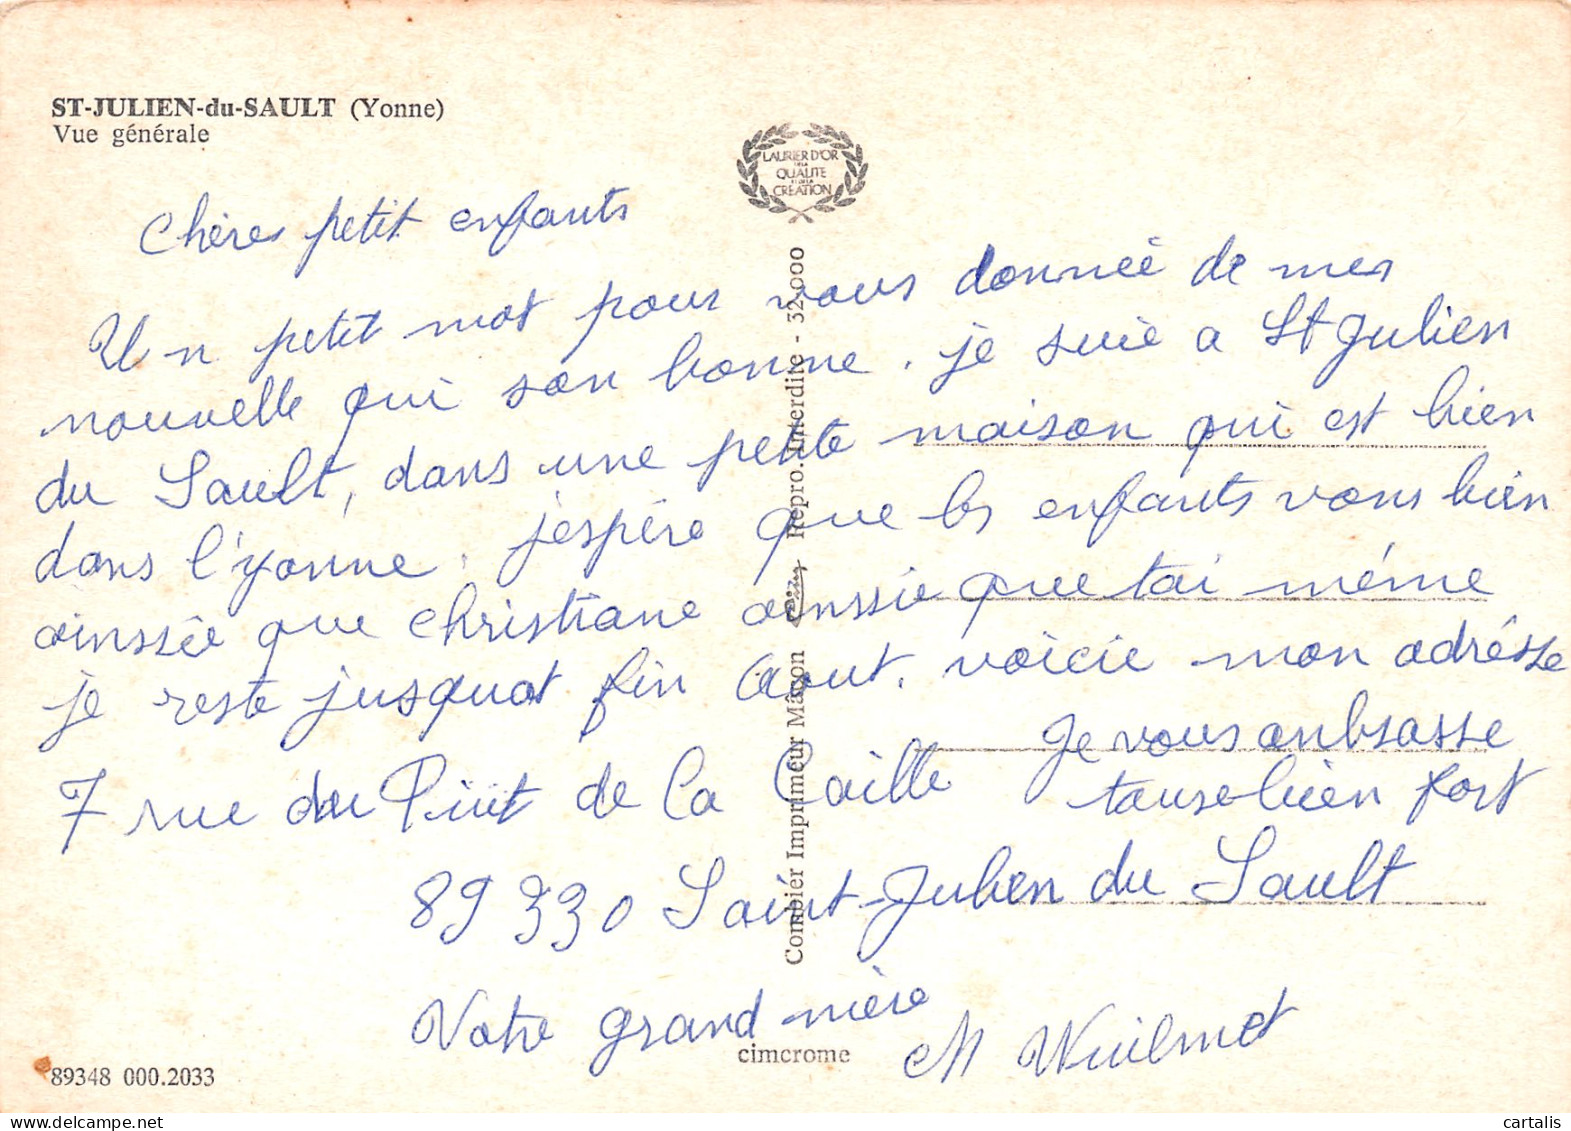 ST-JULIEN-du-SAULT (Yonne)
Vue générale
LAURIER D'OR
DE LA
QUALITE
ET DE LA
CREATION
Chères petit enfants
Un petit mot pour vous donneé de mes
nouvelle qui son bonne. je suie a St Julien
du Sault, dans une petite maison qui est bien
dans l'yonne. j'espére que les enfants vons bien
ainssie que christiane ainssie que tai méme
je reste jusquat fin Aout. voicie mon adrésse
Je vous anbrasse
7 rue du Puit de La Caille tousebien fort
89330 Saint-Julien du Sault
Votre grand mère
M Wuilmet
Combier Imprimeur Mâcon Cim Repro. Interdite - 32.000
cimcrome
89348 000.2033
cartalis